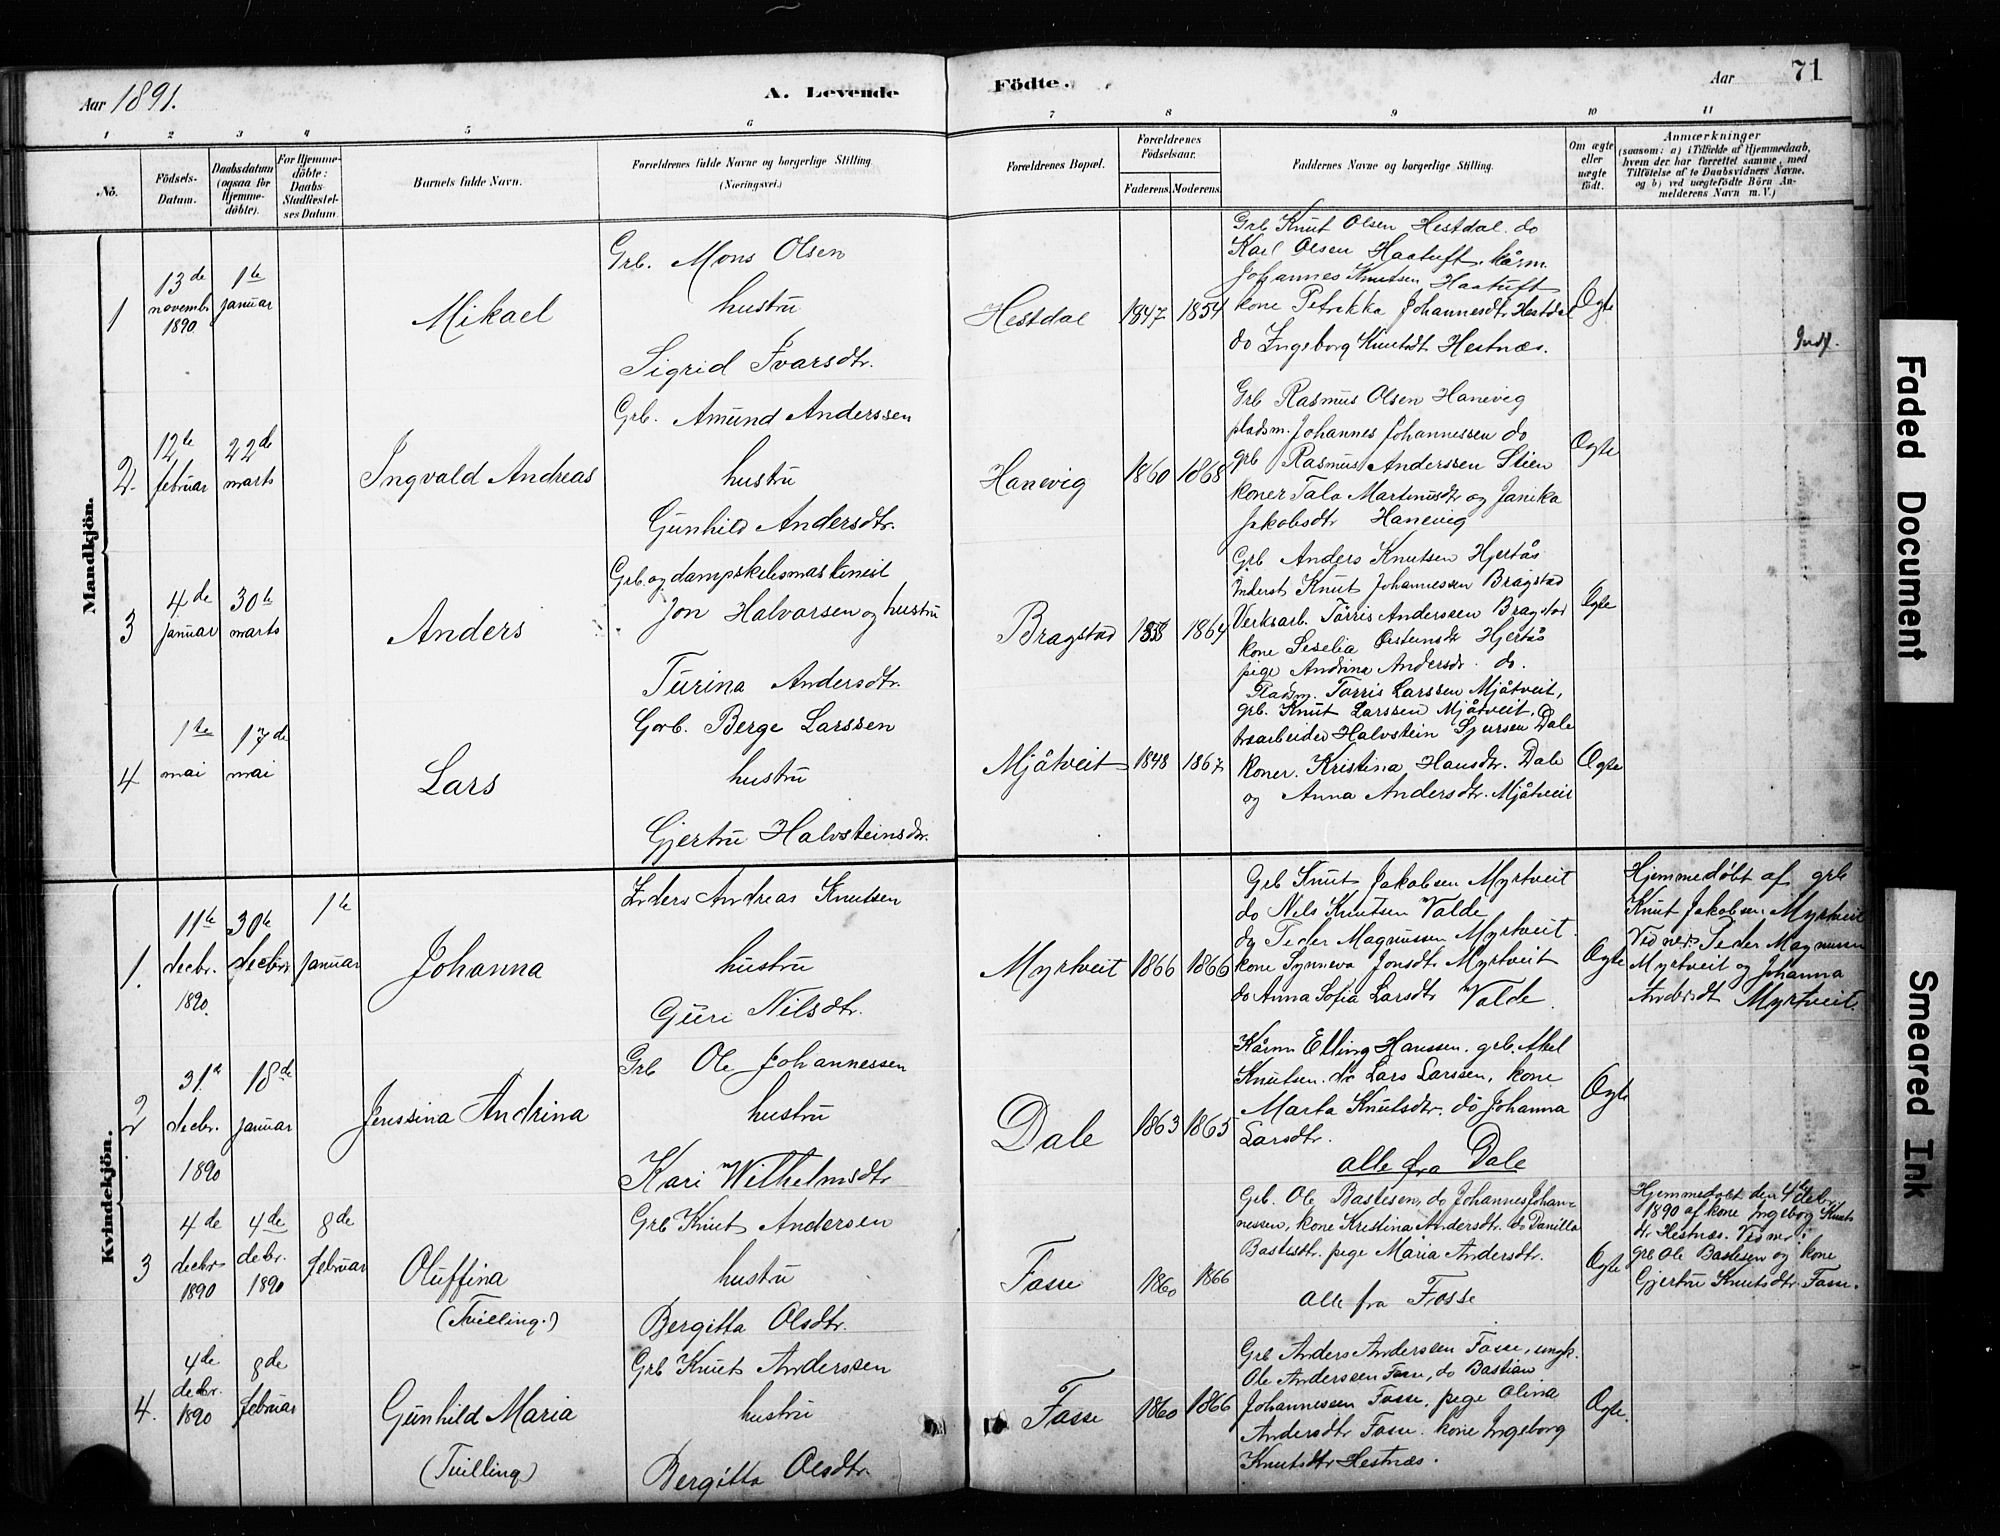 Aar 1891.
A. Levende
Födte.
Aar
71
1
2
3
4
5
6
7
8
9
10
11
No.
Födsels-Datum.
Daabsdatum (ogsaa for Hjemme-döbte).
For Hjemme-döbte: Daabs-Stadfæstel-ses Datum.
Barnets fulde Navn.
Forældrenes fulde Navne og borgerlige Stilling. (Næringsvei.)
Forældrenes Bopæl.
Forældrenes Födselsaar.
Faderens.
Moderens.
Faddernes Navne og borgerlige Stilling.
Om ægte eller uægte födt.
Anmærkninger
(saasom: a) i Tilfælde af Hjemmedaab,
hvem der har forrettet samme, med
Tilföielse af to Daabsvidners Navne,
og b) ved uægtefödte Börn An-
melderens Navn m. V.)
Mandkjön.
1
13de novembr 1890
1te januar
Mikael
Grb. Mons Olsen
hustru
Sigrid Ivarsdtr.
Hestdal
1847
1854
Grb Knut Olsen Hestdal. do
Karl Olsen Haatuft. kårm.
Johannes Knutsen Haatuft
kone Petrikka Johannesdtr Hestdal
do Ingeborg Knutsdt Hestnæs.
Ægte
Indf.
2.
12te februar
22de marts
Ingvald Andreas
Grb. Amund Anderssen
hustru
Gunhild Andersdtr.
Hanevig
1860
1868
Grb Rasmus Olsen Hanevig
pladsm. Johannes Johannessen do
grb Rasmus Anderssen Stien
koner Tala Martinusdtr og Janika
Jakobsdtr Hanevig
Ægte
3
4de januar
30te marts
Anders
Grb. og dampskibsmaskinist
Jon Halvorsen og hustru
Turina Andersdtr.
Bragstad
1858
1864
Grb Anders Knutsen Hjertås
Inderst Knut Johannessen Bragstad
Verksarb. Tørris Anderssen Bragstad
kone Seselia Østensdtr Hjertås
pige Andrina Andersdr. do.
Ægte
4
1te mai
17de mai
Lars
Gorb. Berge Larssen
hustru
Gjertru Halvsteinsdtr.
Mjåtveit
1848
1867
Pladsm. Tørris Larssen Mjåtveit,
grb. Knut Larssen Mjåtveit.
Halvstein Sjursen Dale
koner. Kristina Hansdtr. Dale
og Anna Andersdtr. Mjåtveit
Ægte
Kvindekjön.
1.
11te decbr. 1890.
30te decbr
1te januar
Johanna
Inders Andreas Knutsen
hustru
Guri Nilsdtr.
Myrtveit
1866
1866
Grb Knut Jakobsen Myrtveit
do Nils Knutsen Valde
do Peder Magnussen Myrtveit.
kone Synneva Jonsdtr Myrtveit
do Anna Sofia Larsdtr Valde.
Ægte
Hjemmedøbt af grb
Knut Jakobsen Myrtveit
Vidner: Peder Magnussen
Myrtveit og Johanna
Andersdt Myrtveit.
2
31te decbr. 1890
18de januar
Jenssina Andrina
Grb Ole Johannessen
hustru
Kari Wilhelmsdtr
Dale
1863
1865
Kårm Elling Hanssen. grb. Aksel
Knutsen. do Lars Larssen, kone
Marta Knutsdtr. do Johanna
Larsdtr.
alle fra Dale
Ægte
3
4de decbr 1890
4de decbr. 1890
8de februar
Oluffina
(Tvilling.)
Grb Knut Andersen
hustru
Bergitta Olsdtr.
Fosse
1860
1866
Grb. Ole Bastesen, do Johannes Johan-
nessen, kone Kristina Andersdtr. do Danilla
Bastisdtr. pige Maria Andersdtr.
alle fra Fosse
Ægte
Hjemmedøbt den 4de decbr
1890 af kone Ingebog Knuts
dtr Hestnæs. Vidner:
grb Ole Bastesen og kone
Gjertru Knutsdtr. Fosse.
4.
4de decbr. 1890
8de februar
Gunhild Maria
(Tvilling)
Grb Knut Anderssen
hustru
Bergitta Olsdtr.
Fosse
1860
1866
Grb Anders Anderssen Fosse, ungk.
Ole Anderssen Fosse, do Bastian
Johannessen Fosse. pige Olina
Andersdtr Fosse. kone Ingeborg
Knutsdtr Hestnæs.
Ægte.
Faded Document
Smeared Ink